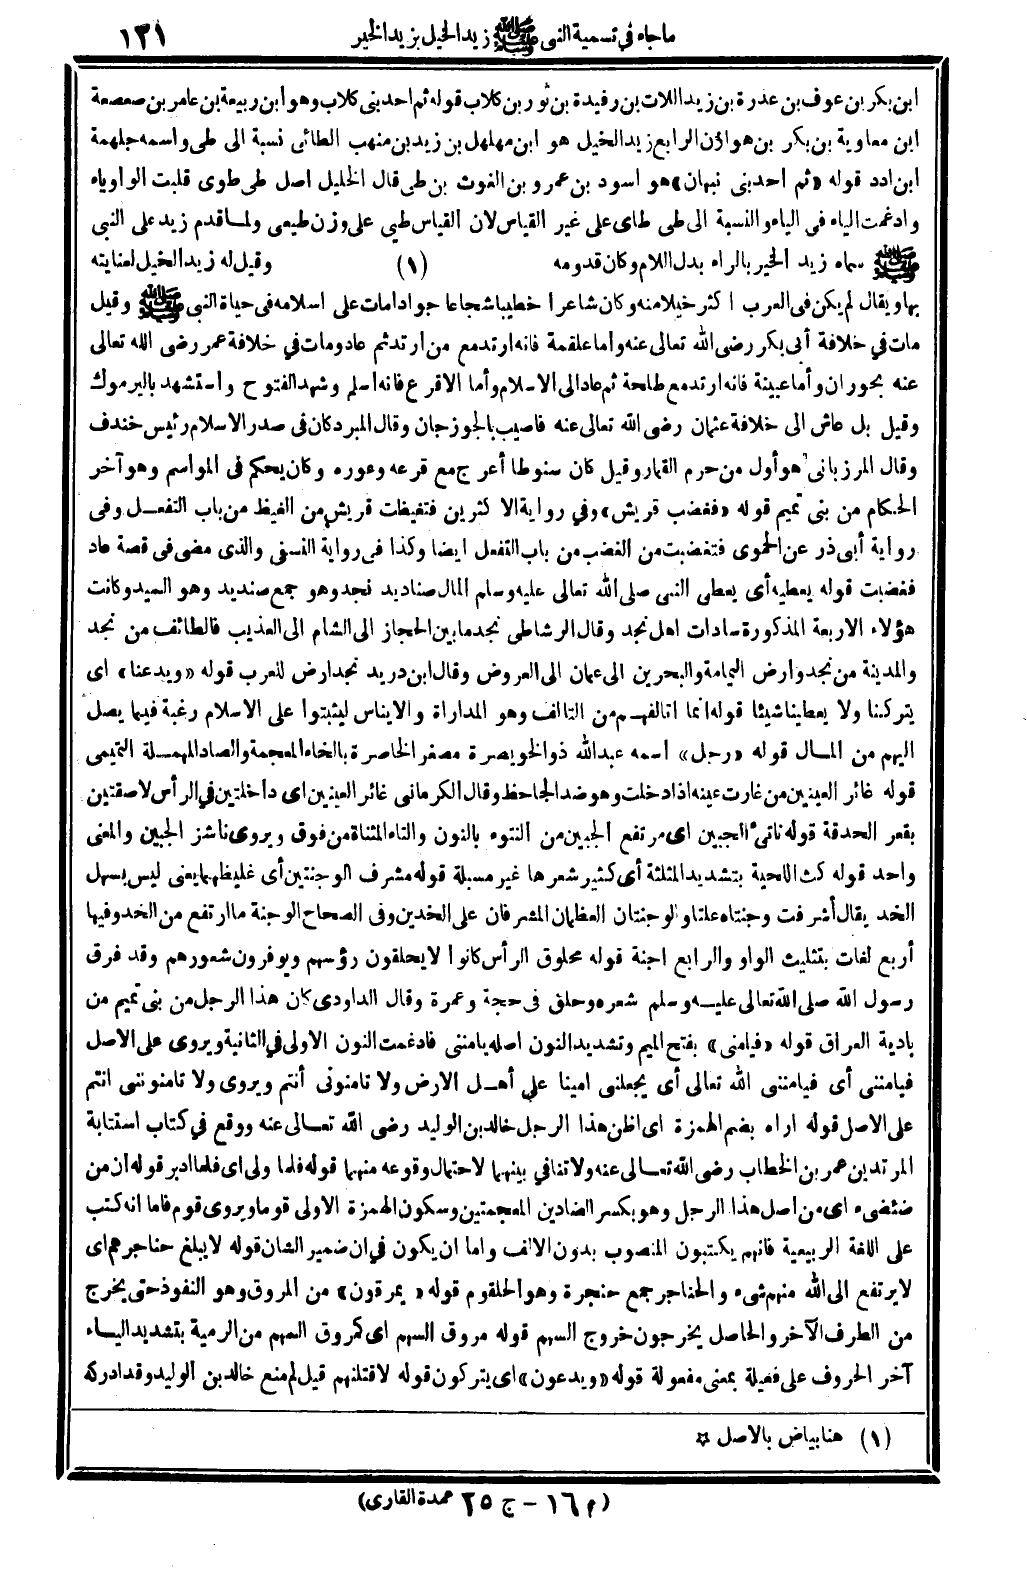 ما جاء في تسمية النبي ﷺ زيد الخيل بزيد الخير
١٢١
ابن بكر بن عوف بن عذرة بن زيد اللات بن رفيدة بن ثور بن كلاب قوله ثم احد بنى كلاب وهو ابن ربيعة بن عامر بن صعصعة
ابن معاوية بن بكر بن هوازن الرابع زيد الخيل هو ابن مهلهل بن زيد بن منهب الطائى نسبة الى طى واسمه جلهمة
ابن ادد قوله «ثم احد بنى نبهان» هو اسود بن عمرو بن الغوث بن طى قال الخليل اصل طى طوى قلبت الواو ياء
وادغمت الياء فى الياء والنسبة الى طى طاى على غير القياس لان القياس طيى على وزن طيعى ولما قدم زيد على النبى
ﷺ سماه زيد الخير بالراء بدل اللام وكان قدومه (١) وقيل له زيد الخيل لعنايته
بها ويقال لم يكن فى العرب اكثر خيلا منه وكان شاعرا خطيبا شجاعا جوادا مات على اسلامه فى حياة النبى ﷺ وقيل
مات في خلافة أبى بكر رضى الله تعالى عنه واما علقمة فانه ارتد مع من ارتد ثم عاد ومات في خلافة عمر رضى الله تعالى
عنه بحوران وأما عيينة فانه ارتد مع طلحة ثم عاد الى الاسلام وأما الاقرع فانه اسلم وشهد الفتوح واستشهد باليرموك
وقيل بل عاش الى خلافة عثمان رضى الله تعالى عنه فاصيب بالجوزجان وقال المبرد كان فى صدر الاسلام رئيس خندف
وقال المرزبانى هو أول من حرم القمار وقيل كان سنوطا أعرج مع قرعه وعوره وكان يحكم فى المواسم وهو آخر
الحكام من بنى تميم قوله «فغضب قريش» وفي رواية الاكثرين فتغيظت قريش من الغيظ من باب التفعل وفى
رواية أبى ذر عن الحموى فتغضبت من الغضب من باب التفعل ايضا وكذا فى رواية النسفى والذى مضى فى قصة عاد
فغضبت قوله يعطيه أى يعطى النبى صلى الله تعالى عليه وسلم المال صناديد نجد وهو جمع صنديد وهو السيد وكانت
هؤلاء الاربعة المذكورة سادات اهل نجد وقال الرشاطى نجد ما بين الحجاز الى الشام الى العذيب فالطائف من نجد
والمدينة من نجد وارض اليمامة والبحرين الى عمان الى العروض وقال ابن دريد نجد ارض للعرب قوله «ويدعنا» اى
يتركنا ولا يعطينا شيئا قوله انما اتالفهم من التالف وهو المداراة والايناس ليثبتوا على الاسلام رغبة فيما يصل
اليهم من المال قوله «رجل» اسمه عبدالله ذو الخويصرة مصغر الخاصرة بالخاء المعجمة والصاد المهملة التميمى
قوله غائر العينين من غارت عينه اذا دخلت وهو ضد الجاحظ وقال الكرمانى غائر العينين اى داخلتين في الرأس لاصقتين
بقعر الحدقة قوله ناتىء الجبين اى مرتفع الجبين من النتوء بالنون والتاء المثناة من فوق ويروى ناشز الجبين والمعنى
واحد قوله كث اللحية بتشديد المثلثة أى كثير شعرها غير مسبلة قوله مشرف الوجنتين أى غليظهما يعنى ليس بسهل
الخد يقال أشرفت وجنتاه علتا والوجنتان العظمان المشرفان على الخدين وفى الصحاح الوجنة ما ارتفع من الخد وفيها
أربع لغات بتثليث الواو والرابع اجنة قوله محلوق الرأس كانوا لا يحلقون رؤسهم ويوفرون شعورهم وقد فرق
رسول الله صلى الله تعالى عليه وسلم شعره وحلق فى حجة وعمرة وقال الداودى كان هذا الرجل من بنى تميم من
بادية العراق قوله «فيامنى» بفتح الميم وتشديد النون اصله يامننى فادغمت النون الاولى في الثانية ويروى على الاصل
فيامننى أى فيامننى الله تعالى أى يجعلنى امينا على أهل الارض ولا تامنونى أنتم ويروى ولا تامنوننى انتم
على الاصل قوله اراه بضم الهمزة اى اظن هذا الرجل خالد بن الوليد رضى الله تعالى عنه ووقع في كتاب استتابة
المرتدين عمر بن الخطاب رضى الله تعالى عنه ولا تنافي بينهما لاحتمال وقوعه منهما قوله فلما ولى اى فلما ادبر قوله ان من
ضئضىء اى من اصل هذا الرجل وهو بكسر الضادين المعجمتين وسكون الهمزة الاولى قوما ويروى قوم فاما انه كتب
على اللغة الربيعية فانهم يكتبون المنصوب بدون الالف واما ان يكون في ان ضمير الشان قوله لا يبلغ حناجرهم اى
لا يرتفع الى الله منهم شىء والحناجر جمع حنجرة وهو الحلقوم قوله «يمرقون» من المروق وهو النفوذ حتى يخرج
من الطرف الآخر والحاصل يخرجون خروج السهم قوله مروق السهم اى كمروق السهم من الرمية بتشديد الياء
آخر الحروف على فعيلة بمعنى مفعولة قوله «ويدعون» اى يتركون قوله لاقتلنهم قيل لم منع خالد بن الوليد وقد ادركه
(١) هنا بياض بالاصل
(م ١٦ – ج ٢٥ عمدة القارى)